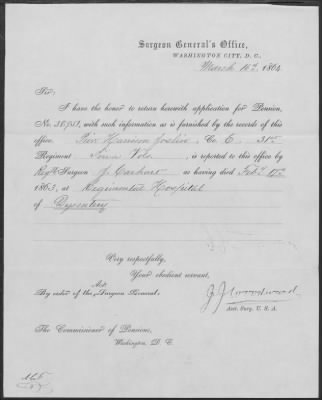 Surgeon General's Office,
WASHINGTON CITY, D. C.
March 14th, 1864
Sir,
I have the honor to return herewith application for Pension,
No. with such information as is furnished by the records of this
office. Harrison Co. E 31st
Regiment Iowa Vols, is reported to this office by
Regtl Surgeon J. Carhart as having died Feb.
1863, at Regimental Hospital
of Dysentery
Very respectfully,
Your obedient servant,
By order of the Act. Surgeon General:
J. J. Woodward
Asst. Surg. U. S. A.
The Commissioner of Pensions,
Washington, D. C.